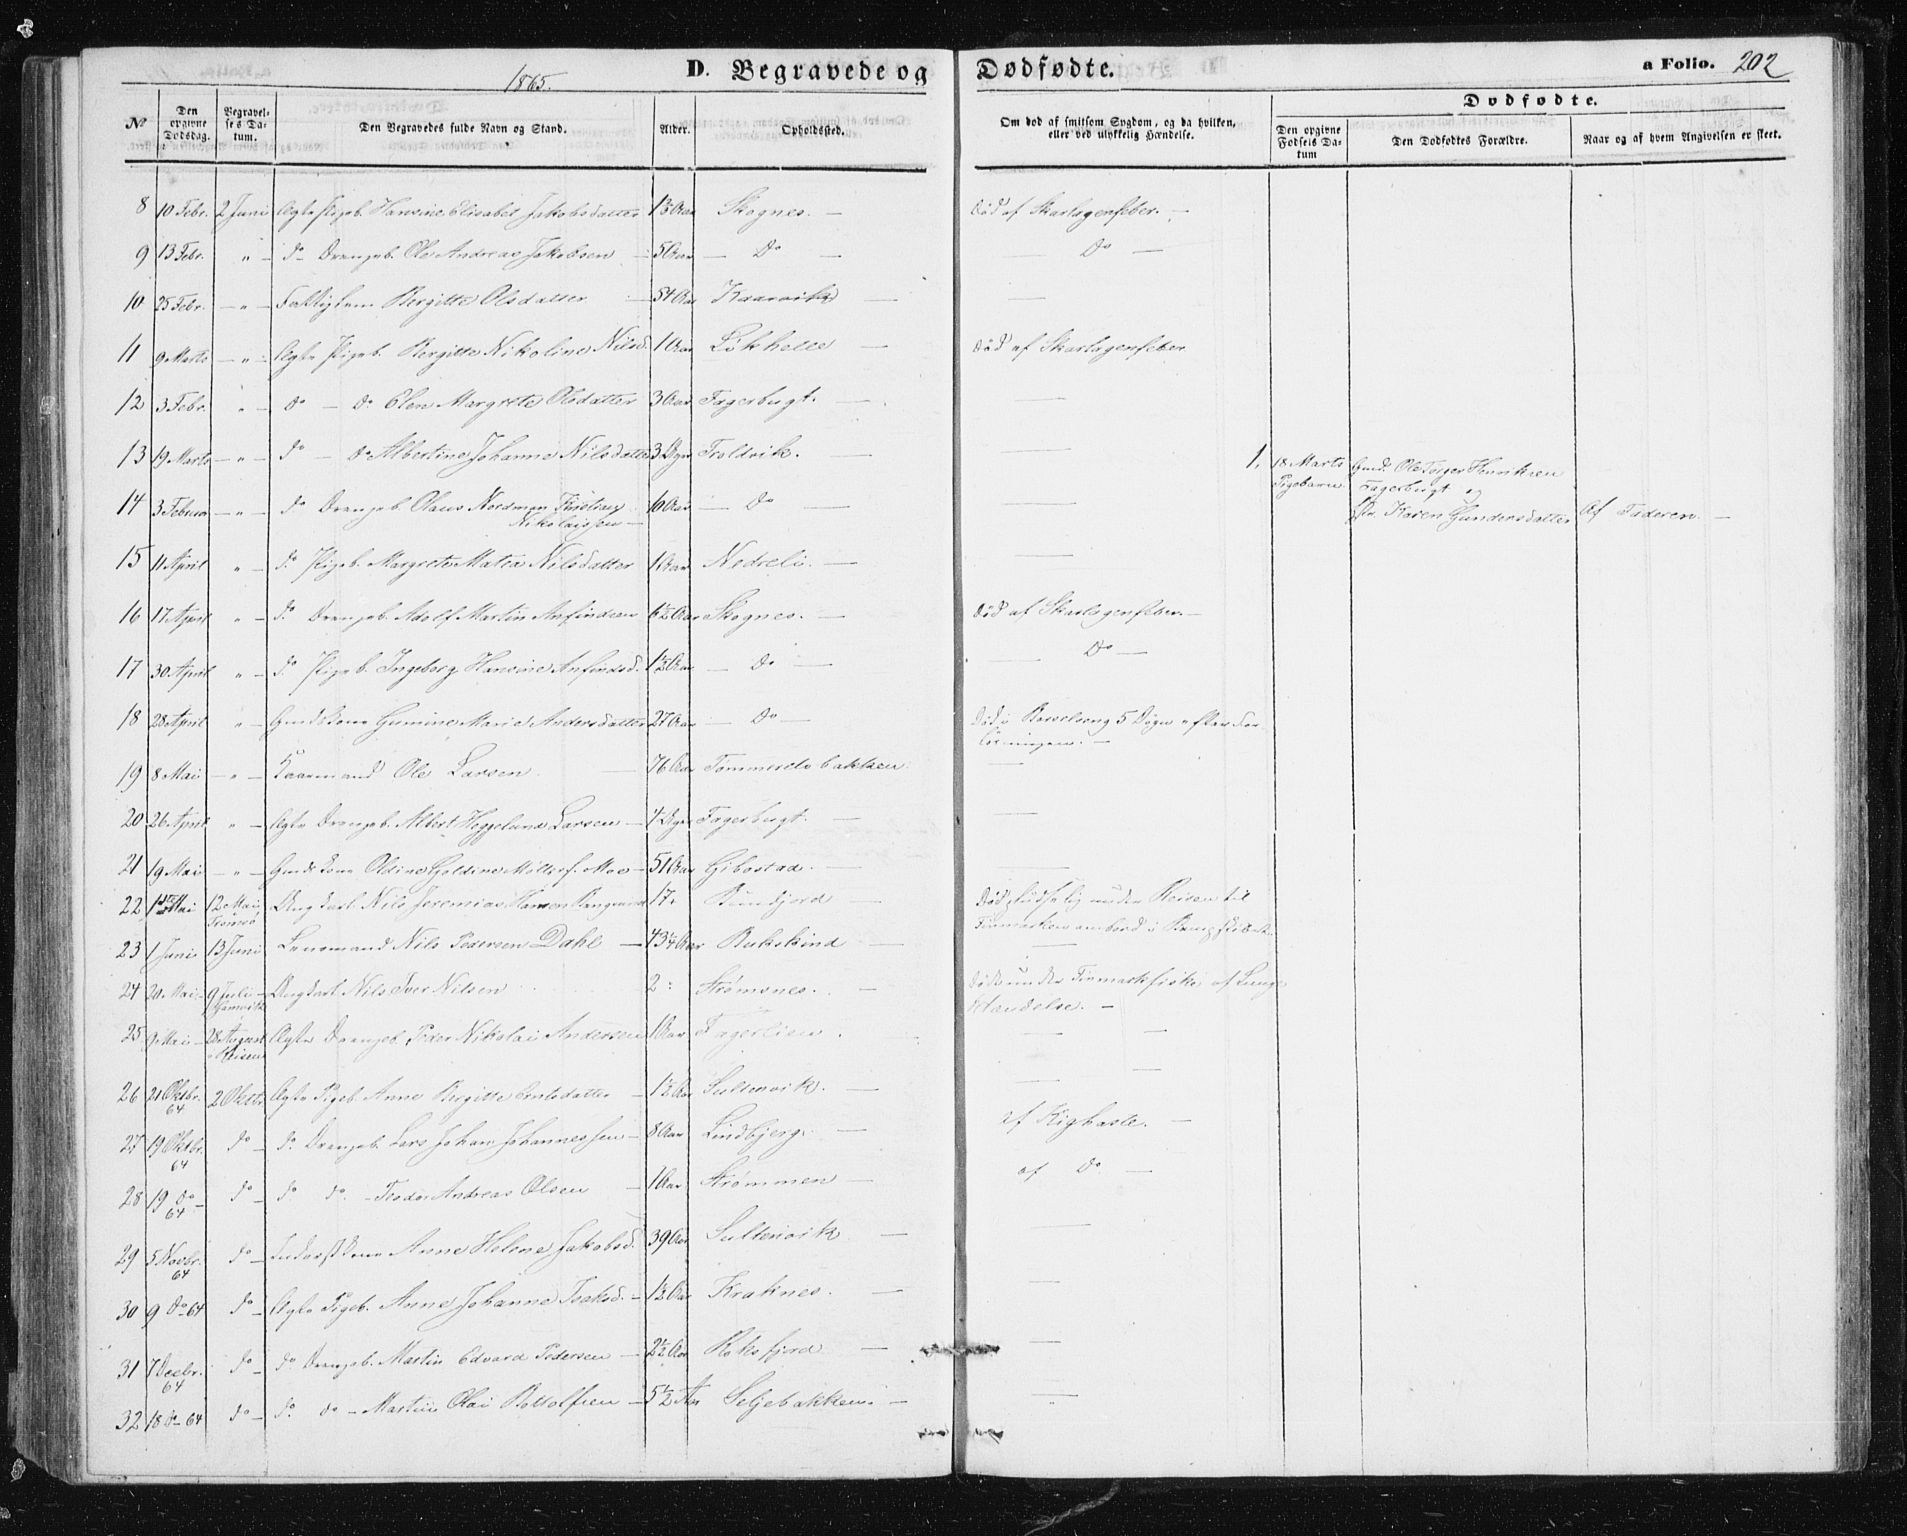 1865.
D. Begravede og Dødfødte.
a Folio. 202
No
Den opgivne Dødsdag.
Begravelses Datum.
Den Begravedes fulde Navn og Stand.
Alder.
Opholdssted.
Om død af smitsom Sygdom, og da hvilken, eller ved ulykkelig Hændelse.
Dødfødte.
Den opgivne Fødsels Datum
Den Dødfødtes Forældre.
Naar og af hvem Angivelsen er skeet.
8 10 Febr. 2 Juni Ægte Pigeb. Hansine Elisabet Jakobsdatter 1½ Aar Skognes. — Død af Skarlagenfeber. —
9 13 Febr. " — do Drengeb. Ole Andreas Jakobsen — 5 Aar — Do — — Do —
10 25 Febr. — " — Bergitte Olsdatter — 54 Aar Kaarvik — —
11 9 Marts — " — Ægte Pigeb. Bergitte Nikoline Nilsd. 1 Aar Løkhelle — Død af Skarlagenfeber
12 3 Febr. " — do — do Elen Margrete Olsdatter 3 Aar Fagerbugt. — —
13 19 Marts — " — do — do Albertine Johanne Nilsdatter 3 Døgn Troldvik. —
1. 18 Marts Pigebarn Gmd. Ole Torger Henriksen
Fagerbugt og
Karen Gundersdatter Af Faderen. —
14 3 Februar — " — do Drengeb. Olaus Nordman Kristian
Nikolaissen — Aar — Do — —
15 11 April " — do Pigeb. Margrete Matea Nilsdatter 1 Aar Nedreli. — —
16 17 April " — do Drengeb. Adolf Martin Anfindsen 6½ Aar Skognes. — Død af Skarlagenfeber. —
17 30 April " — do Pigeb. Ingeborg Hansine Anfindsd. 1½ Aar — Do — — Do —
18 28 April " — Gmdskone Gumine Marie Andersdatter 27 Aar — Do — Død i Barselseng 5 Døgn efter For-
løsningen. —
19 8 Mai — " — Kaarmand Ole Larsen — 76 Aar Tømmerelvbakken —
20 26 April " — Ægte Drengeb. Albert Heggelund Larsen — 4 Døgn Fagerbugt. — —
21 19 Mai — " — Gmdskone Oldine Goldine Møller f. Moe — 51 Aar Gibostad. — —
22 Mai 12 Mai Tromsø Ungkarl Nils Jeremias Hansen 17. — Død pludselig under Reisen til
Finmarken ombord i
23 1 Juni 13 Juni Lensmand Nils Pedersen Dahl — 43¼ Aar Bukskind — —
24 20 Mai 9 Juli Ungkarl Nils Iver Nilsen 2 Strømsnes. — Døde under Finmarkfiske af Lunge
25 9 Mai — 28 August Ægte Drengeb. Peder Nikolai Andersen 1 Aar Fagerlien — —
26 21 Oktbr. 64 2 Oktbr Ægte Pigeb. Anne Birgitte — 1½ Aar Sultenvik. — —
27 19 Oktbr. 64 do — do Drengeb. Lars Johan Johannessen — 8 Aar Lindbjerg. — af Kighoste. —
28 19 do 64 do — do do. — Teodor Andreas Olsen — 1 Aar Strømmen — af Do —
29 5 Novbr. 64 do — Inderstkone Anne Helene Jakobsd. 39 Aar Sultenvik — —
30 9 do 64 do — Ægte Pigeb. Anne Johanne Isaksd. — 1½ Aar Kraknes. — —
31 7 Decbr. 64 do — do Drengeb. Martin Edvard Pedersen — 2½ Aar Roksfjord — —
32 18 do 64 do — do do — Martin Olai Bottolfsen — 5½ Aar Seljebakken. —